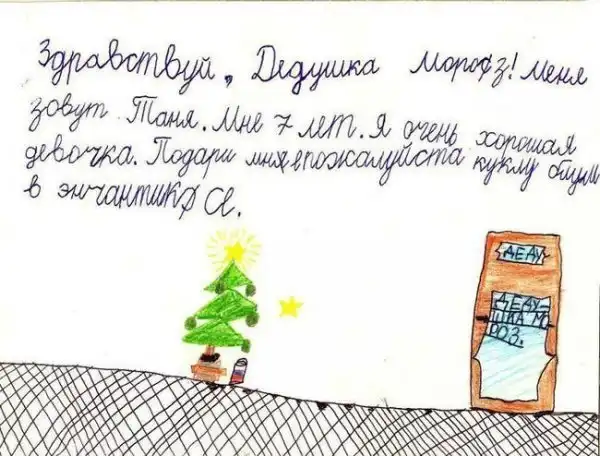 Здравствуй, Дедушка Мороз! Меня
зовут Таня. Мне 7 лет. Я очень хорошая
девочка. Подари мня пожалуйста куклу блум
в энчантиксе.
ДЕДУ
ДЕДУ-
ШКА М
РОЗ.